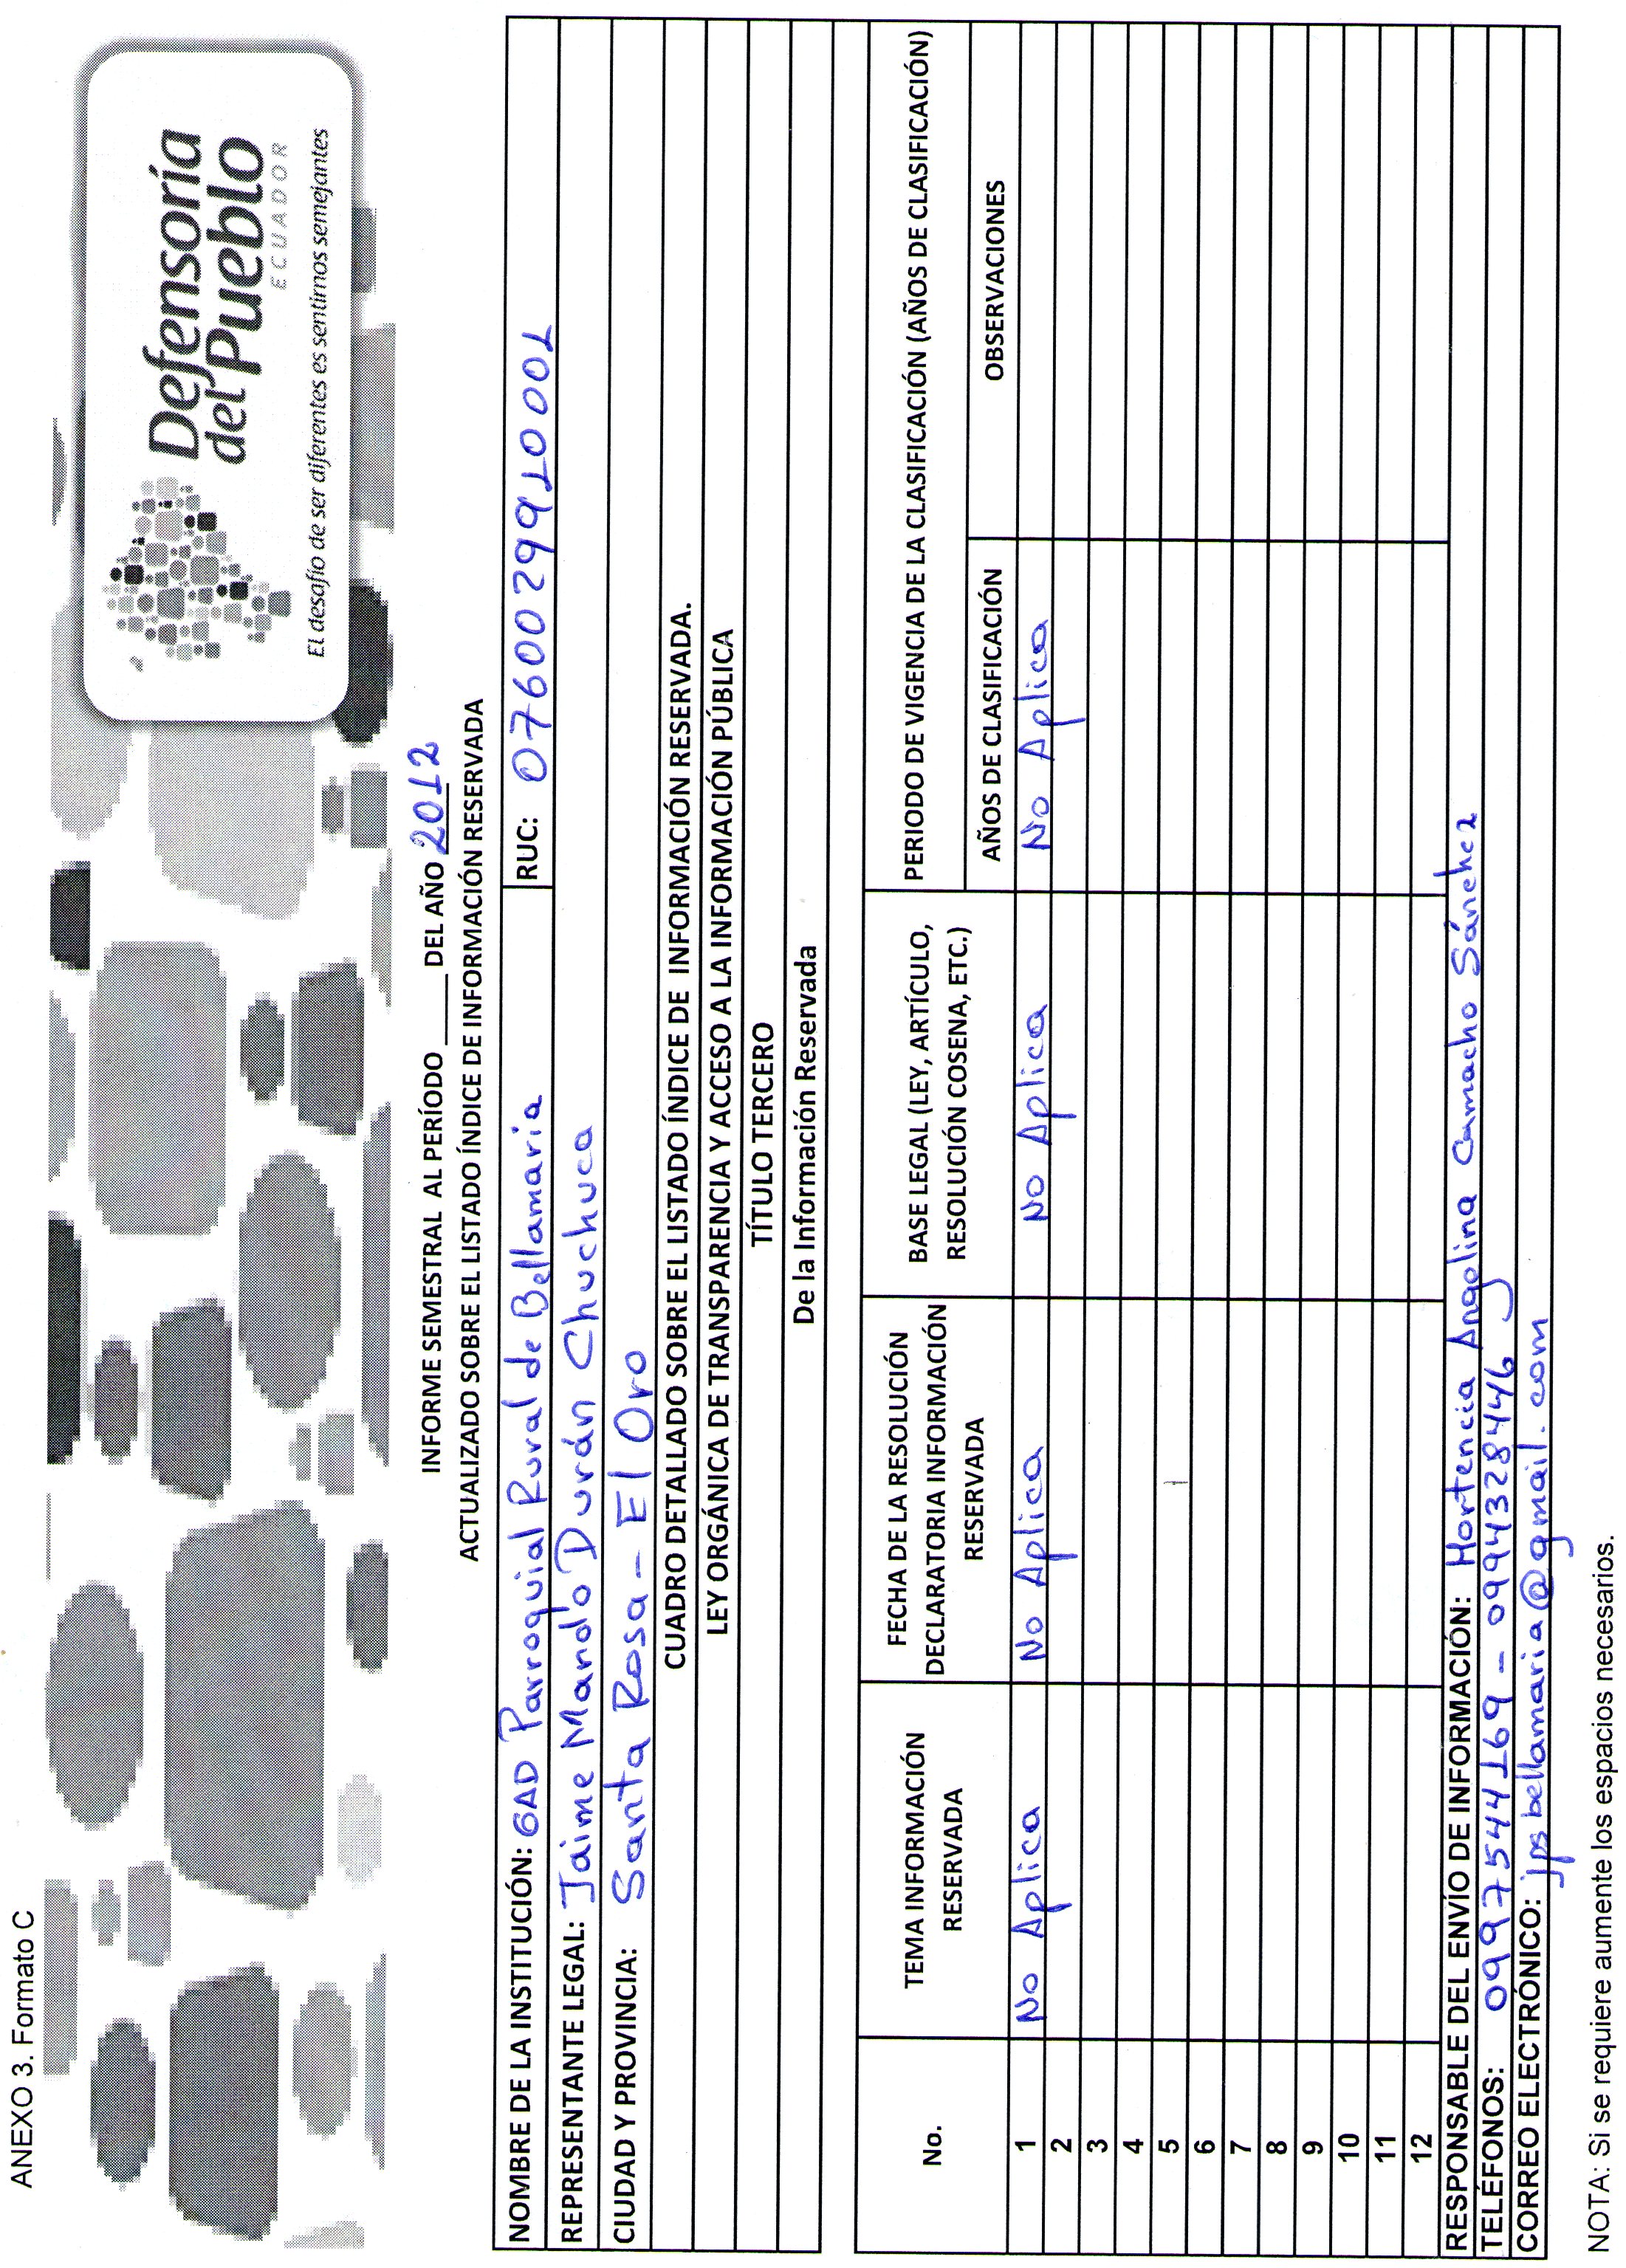 ANEXO 3. Formato C
Defensoría
del Pueblo
ECUADOR
El desafío de ser diferentes es sentirnos semejantes
INFORME SEMESTRAL AL PERÍODO _____ DEL AÑO 2012
ACTUALIZADO SOBRE EL LISTADO ÍNDICE DE INFORMACIÓN RESERVADA
NOMBRE DE LA INSTITUCIÓN: GAD Parroquial Rural de Bellamaria RUC: 0760029910001
REPRESENTANTE LEGAL: Jaime Mando Durán Chuchuca
CIUDAD Y PROVINCIA: Santa Rosa - El Oro
CUADRO DETALLADO SOBRE EL LISTADO ÍNDICE DE INFORMACIÓN RESERVADA.
LEY ORGÁNICA DE TRANSPARENCIA Y ACCESO A LA INFORMACIÓN PÚBLICA
TÍTULO TERCERO
De la Información Reservada
No. TEMA INFORMACIÓN RESERVADA FECHA DE LA RESOLUCIÓN DECLARATORIA INFORMACIÓN RESERVADA BASE LEGAL (LEY, ARTÍCULO, RESOLUCIÓN COSENA, ETC.) PERIODO DE VIGENCIA DE LA CLASIFICACIÓN (AÑOS DE CLASIFICACIÓN)
AÑOS DE CLASIFICACIÓN OBSERVACIONES
1 No Aplica No Aplica No Aplica No Aplica
2
3
4
5
6
7
8
9
10
11
12
RESPONSABLE DEL ENVÍO DE INFORMACIÓN: Hortencia Angelina Camacho Sánchez
TELÉFONOS: 0997544169 - 0994328446
CORREO ELECTRÓNICO: jpsbellamaria@gmail.com
NOTA: Si se requiere aumente los espacios necesarios.